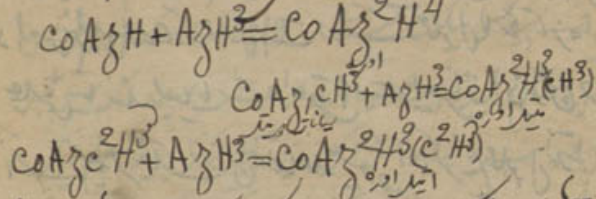 CoAzH + AzH³ = CoAz²H⁴
CoAz,CH³ + AzH³ = CoAz²H³(CH³)
CoAzC²H³ + AzH³ = CoAz²H³(C²H³)